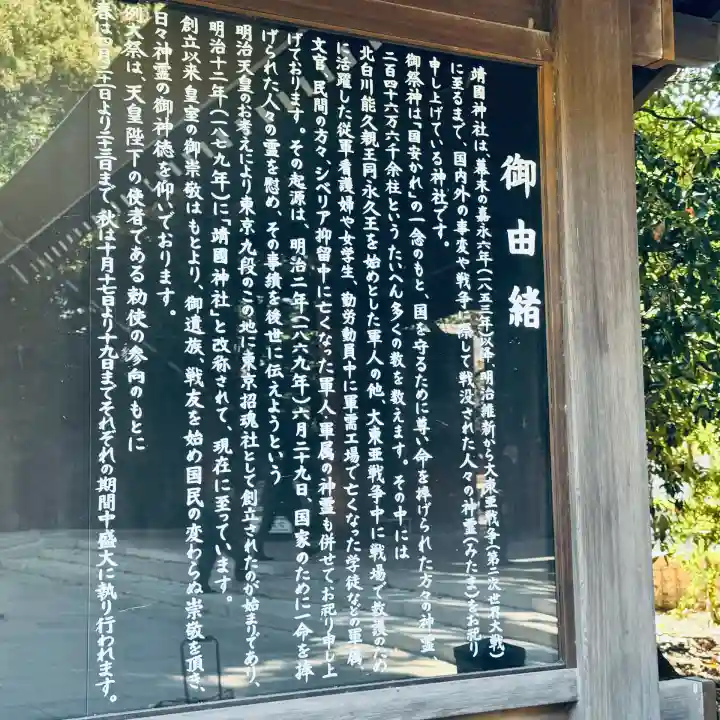 御由緒
靖國神社は幕末の嘉永六年(一八五三年)以降、明治維新から大東亜戦争(第二次世界大戦)
に至るまで、国内外の事変や戦争に際して戦没された人々の神霊(みたま)をお祀り
申し上げている神社です。
御祭神は「国安かれ」の一念のもと、国を守るために尊い命を捧げられた方々の神霊
二百四十六万六千余柱というたいへん多くの数を数えます。その中には
北白川能久親王、同・永久王を始めとした軍人の他、大東亜戦争中に戦場で救護のため
に活躍した従軍看護婦や女学生、勤労動員中に軍需工場で亡くなった学徒などの軍属、
文官、民間の方々、シベリア抑留中に亡くなった軍人・軍属の神霊も併せてお祀り申し上
げております。その起源は、明治二年(一八六九年)六月二十九日、国家のために一命を捧
げられた人々の霊を慰め、その事績を後世に伝えようという
明治天皇のお考えにより東京九段のこの地に東京招魂社として創立されたのが始まりであり、
明治十二年(一八七九年)に「靖國神社」と改称されて、現在に至っています。
創立以来、皇室の御崇敬はもとより、御遺族、戦友を始め国民の変わらぬ崇敬を頂き、
日々神霊の御神徳を仰いでおります。
例大祭は、天皇陛下の使者である勅使の参向のもとに
春は四月二十一日より二十三日まで、秋は十月十七日より十九日までそれぞれの期間中盛大に執り行われます。